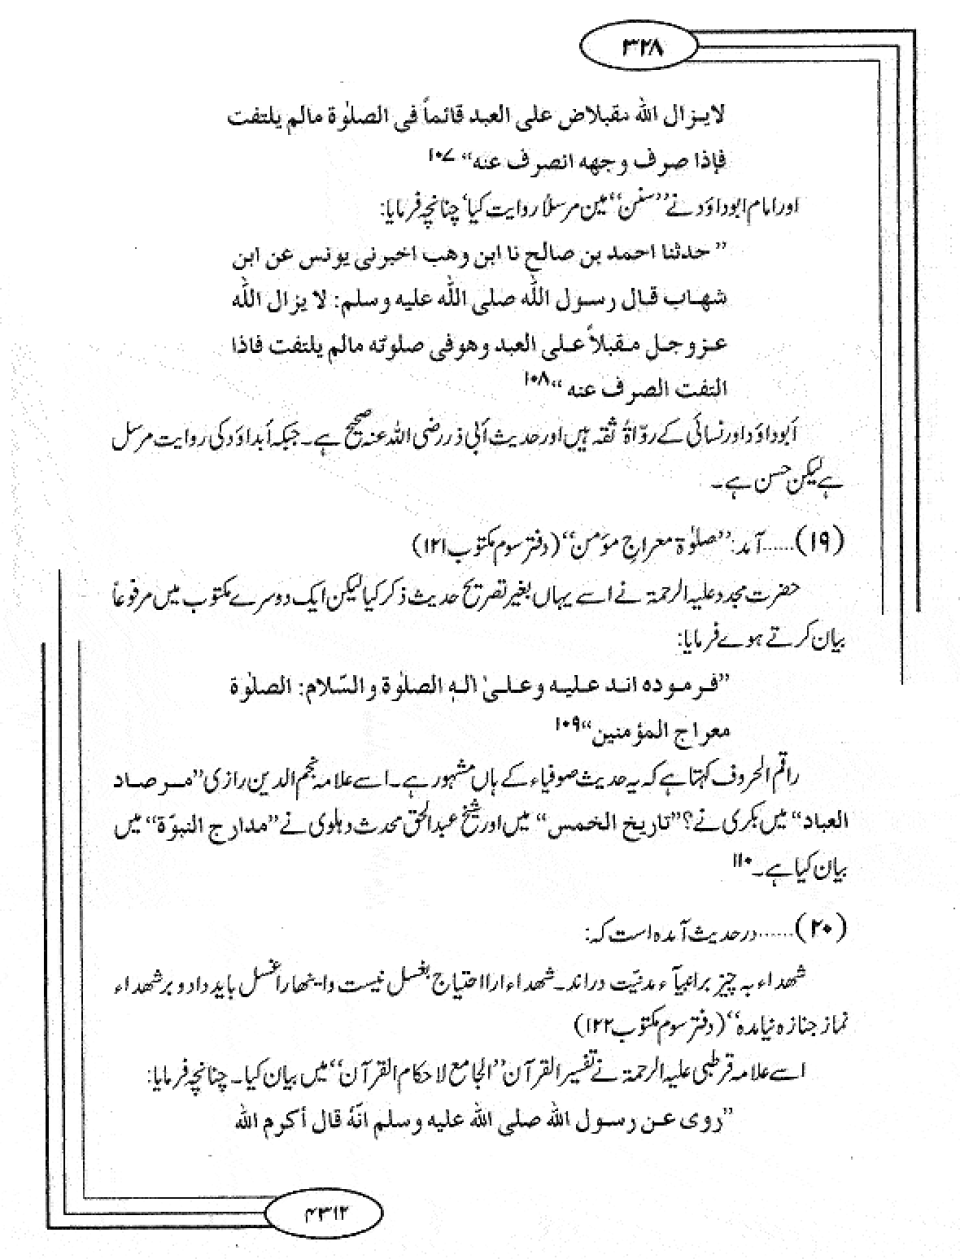 ۳۲۸
لایـزال الله مقبلاض علی العبد قائماً فی الصلوٰة مالم یلتفت
فإذا صرف وجهه انصرف عنه“ ۱۰۷
اور امام ابوداؤد نے ”سنن“ مین مرسلًا روایت کیا‘ چنانچہ فرمایا:
”حدثنا احمد بن صالح نا ابن وهب اخبرنی یونس عن ابن
شهـاب قـال رسـول الله صلی الله علیه وسلم: لا یزال الله
عـزوجـل مـقبلاً عـلـی العبد وهوفی صلوته مالم یلتفت فاذا
التفت الصرف عنه“ ۱۰۸
أبوداؤد اور نسائی کے روّاۃ ثقہ ہیں اور حدیث أبی ذر رضی اللہ عنہ صحیح ہے۔ جبکہ أبداؤد کی روایت مرسل
ہے لیکن حسن ہے۔
(۱۹)......آمد: ”صلوٰۃ معراجِ مؤمن“ (دفتر سوم مکتوب ۱۲۱)
حضرت مجدد علیہ الرحمۃ نے اسے یہاں بغیر تصریح حدیث ذکر کیا لیکن ایک دوسرے مکتوب میں مرفوعاً
بیان کرتے ہوے فرمایا:
”فـرمـوده انـد عـلیـه وعـلـیٰ الـهٖ الصلوٰة والسّلام: الصلوٰة
معراج المؤمنین“ ۱۰۹
راقم الحروف کہتا ہے کہ یہ حدیث صوفیاء کے ہاں مشہور ہے۔ اسے علامہ نجم الدین رازی ”مـرصـاد
العباد“ میں بکری نے؟ ”تاریخ الخمس“ میں اور شیخ عبدالحق محدث دہلوی نے ”مدارج النبوّة“ میں
بیان کیا ہے۔ ۱۱۰
(۲۰)......در حدیث آمدہ است کہ:
شهداء بہ چیز بر انبیآء مدنیّت دراند۔ شهداء ارا احتیاج بغسل نیست واینهارا غسل باید داد و بر شهداء
نماز جنازہ نیامدہ“ (دفتر سوم مکتوب ۱۲۲)
اسے علامہ قرطبی علیہ الرحمۃ نے تفسیر القرآن ”الجامع لاحکام القرآن“ میں بیان کیا۔ چنانچہ فرمایا:
”روی عـن رسـول الله صلی الله علیه وسلم انّهٗ قال أکرم الله
۴۳۱۲